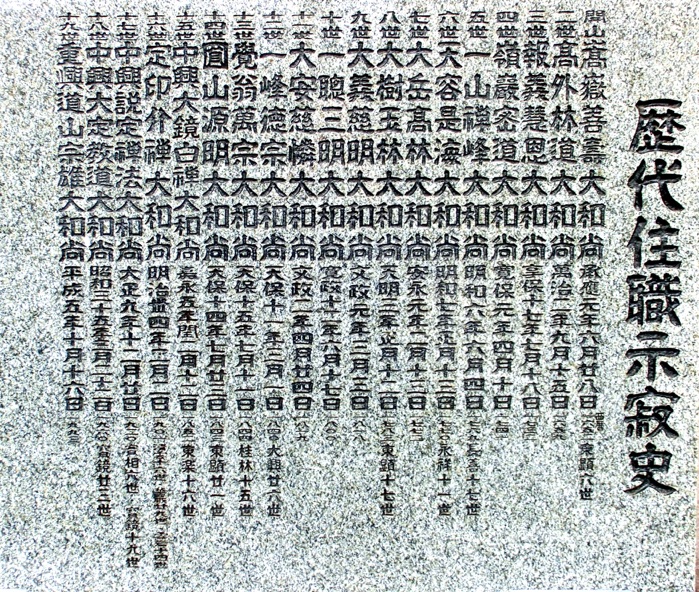 歴代住職示寂史
開山高嶽善壽大和尚承應元年六月廿八日 東顕八世
二世高外林道大和尚萬治二年九月十五日
三世報義慧恩大和尚享保十七年七月十八日
四世嶺巖密道大和尚寛保元年四月十日
五世一山禅峰大和尚明和六年六月四日
六世天容是海大和尚明和七年正月十三日 永祥十一世
七世大岳高林大和尚安永二年二月十一日
八世大樹玉林大和尚天明二年正月十一日 東顕十七世
九世大義慈明大和尚文政元年十二月三日
十世一聰三明大和尚寛政十二年六月十七日
十一世大安慈憐大和尚文政二年四月廿四日
十二世一峰徳宗大和尚天保十一年三月一日 大鏡廿六世
十三世覺翁萬宗大和尚天保十五年七月一日 桂林十五世
十四世圓山源明大和尚天保十四年七月廿二日 東顕廿一世
十五世中興大鏡白禅大和尚嘉永五年閏二月十二日 東楽十六世
十六世定印弁禅大和尚明治丗四年三月二日
十七世中興説定禅法大和尚大正九年十二月廿日
十八世中興大定教道大和尚昭和三十五年三月二十二日
十九世重興道山宗雄大和尚平成五年十月十六日 一九九三